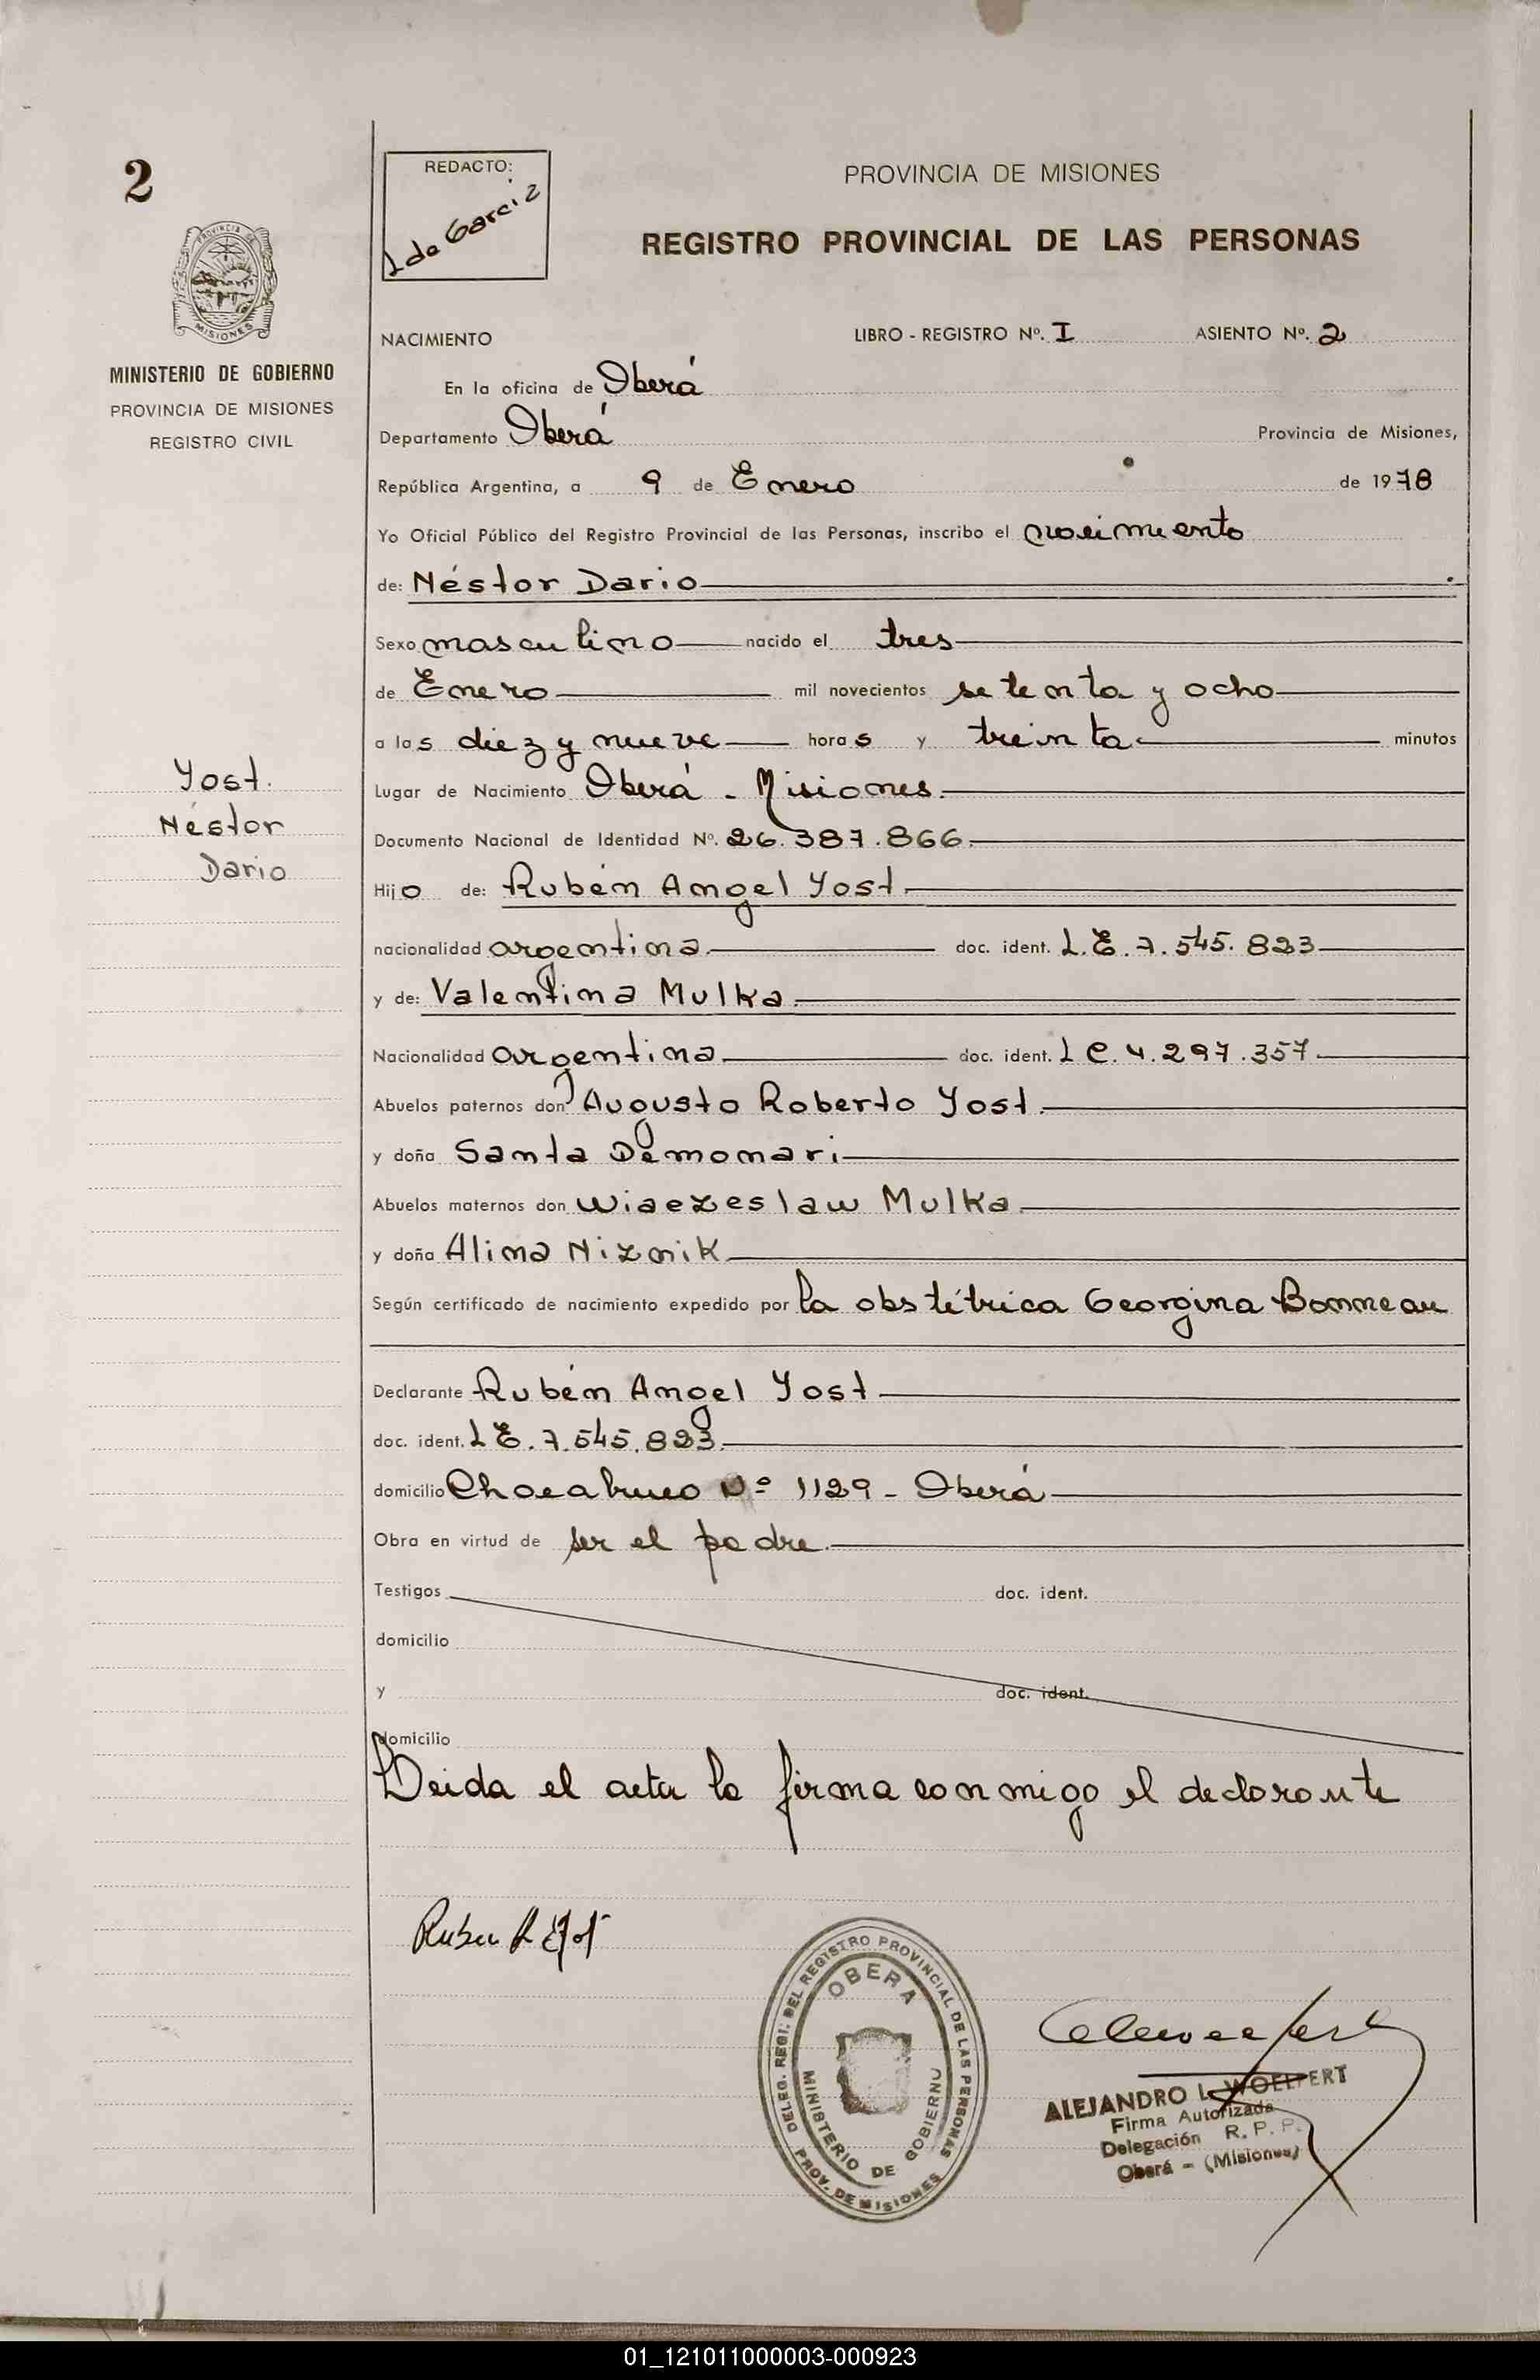 2
REDACTO:
PROVINCIA DE MISIONES
REGISTRO PROVINCIAL DE LAS PERSONAS
PROVINCIA DE
MISIONES
MINISTERIO DE GOBIERNO
PROVINCIA DE MISIONES
REGISTRO CIVIL
NACIMIENTO LIBRO - REGISTRO Nº. I ASIENTO Nº. 2
En la oficina de Oberá
Departamento Oberá Provincia de Misiones,
República Argentina, a 9 de Enero de 1978
Yo Oficial Público del Registro Provincial de las Personas, inscribo el nacimiento
de: Néstor Dario
Sexo masculino nacido el tres
de Enero mil novecientos setenta y ocho
a las diez y nueve horas y treinta minutos
Yost.
Néstor
Dario
Lugar de Nacimiento Oberá - Misiones.
Documento Nacional de Identidad Nº. 26.387.866.
Hijo de: Rubén Angel Yost
nacionalidad argentina doc. ident. L.E. 7.545.823
y de: Valentina Mulka
Nacionalidad argentina doc. ident. L C. 4.297.357
Abuelos paternos don Augusto Roberto Yost.
y doña Santa Demonari
Abuelos maternos don Wiaezeslaw Mulka
y doña Alina Niznik
Según certificado de nacimiento expedido por la obstétrica Georgina Bonneau
Declarante Rubén Angel Yost
doc. ident. L E. 7.545.823.
domicilio Chacabuco Nº 1129 - Oberá
Obra en virtud de ser el padre.
Testigos doc. ident.
domicilio
y doc. ident.
domicilio
Leida el acta la firma conmigo el declarante
DELEG. REGI: DEL REGISTRO PROVINCIAL DE LAS PERSONAS
OBERA
MINISTERIO DE GOBIERNO
PROV. DE MISIONES
ALEJANDRO L. WOELFERT
Firma Autorizada
Delegación R. P. P.
Oberá - (Misiones)
01_121011000003-000923